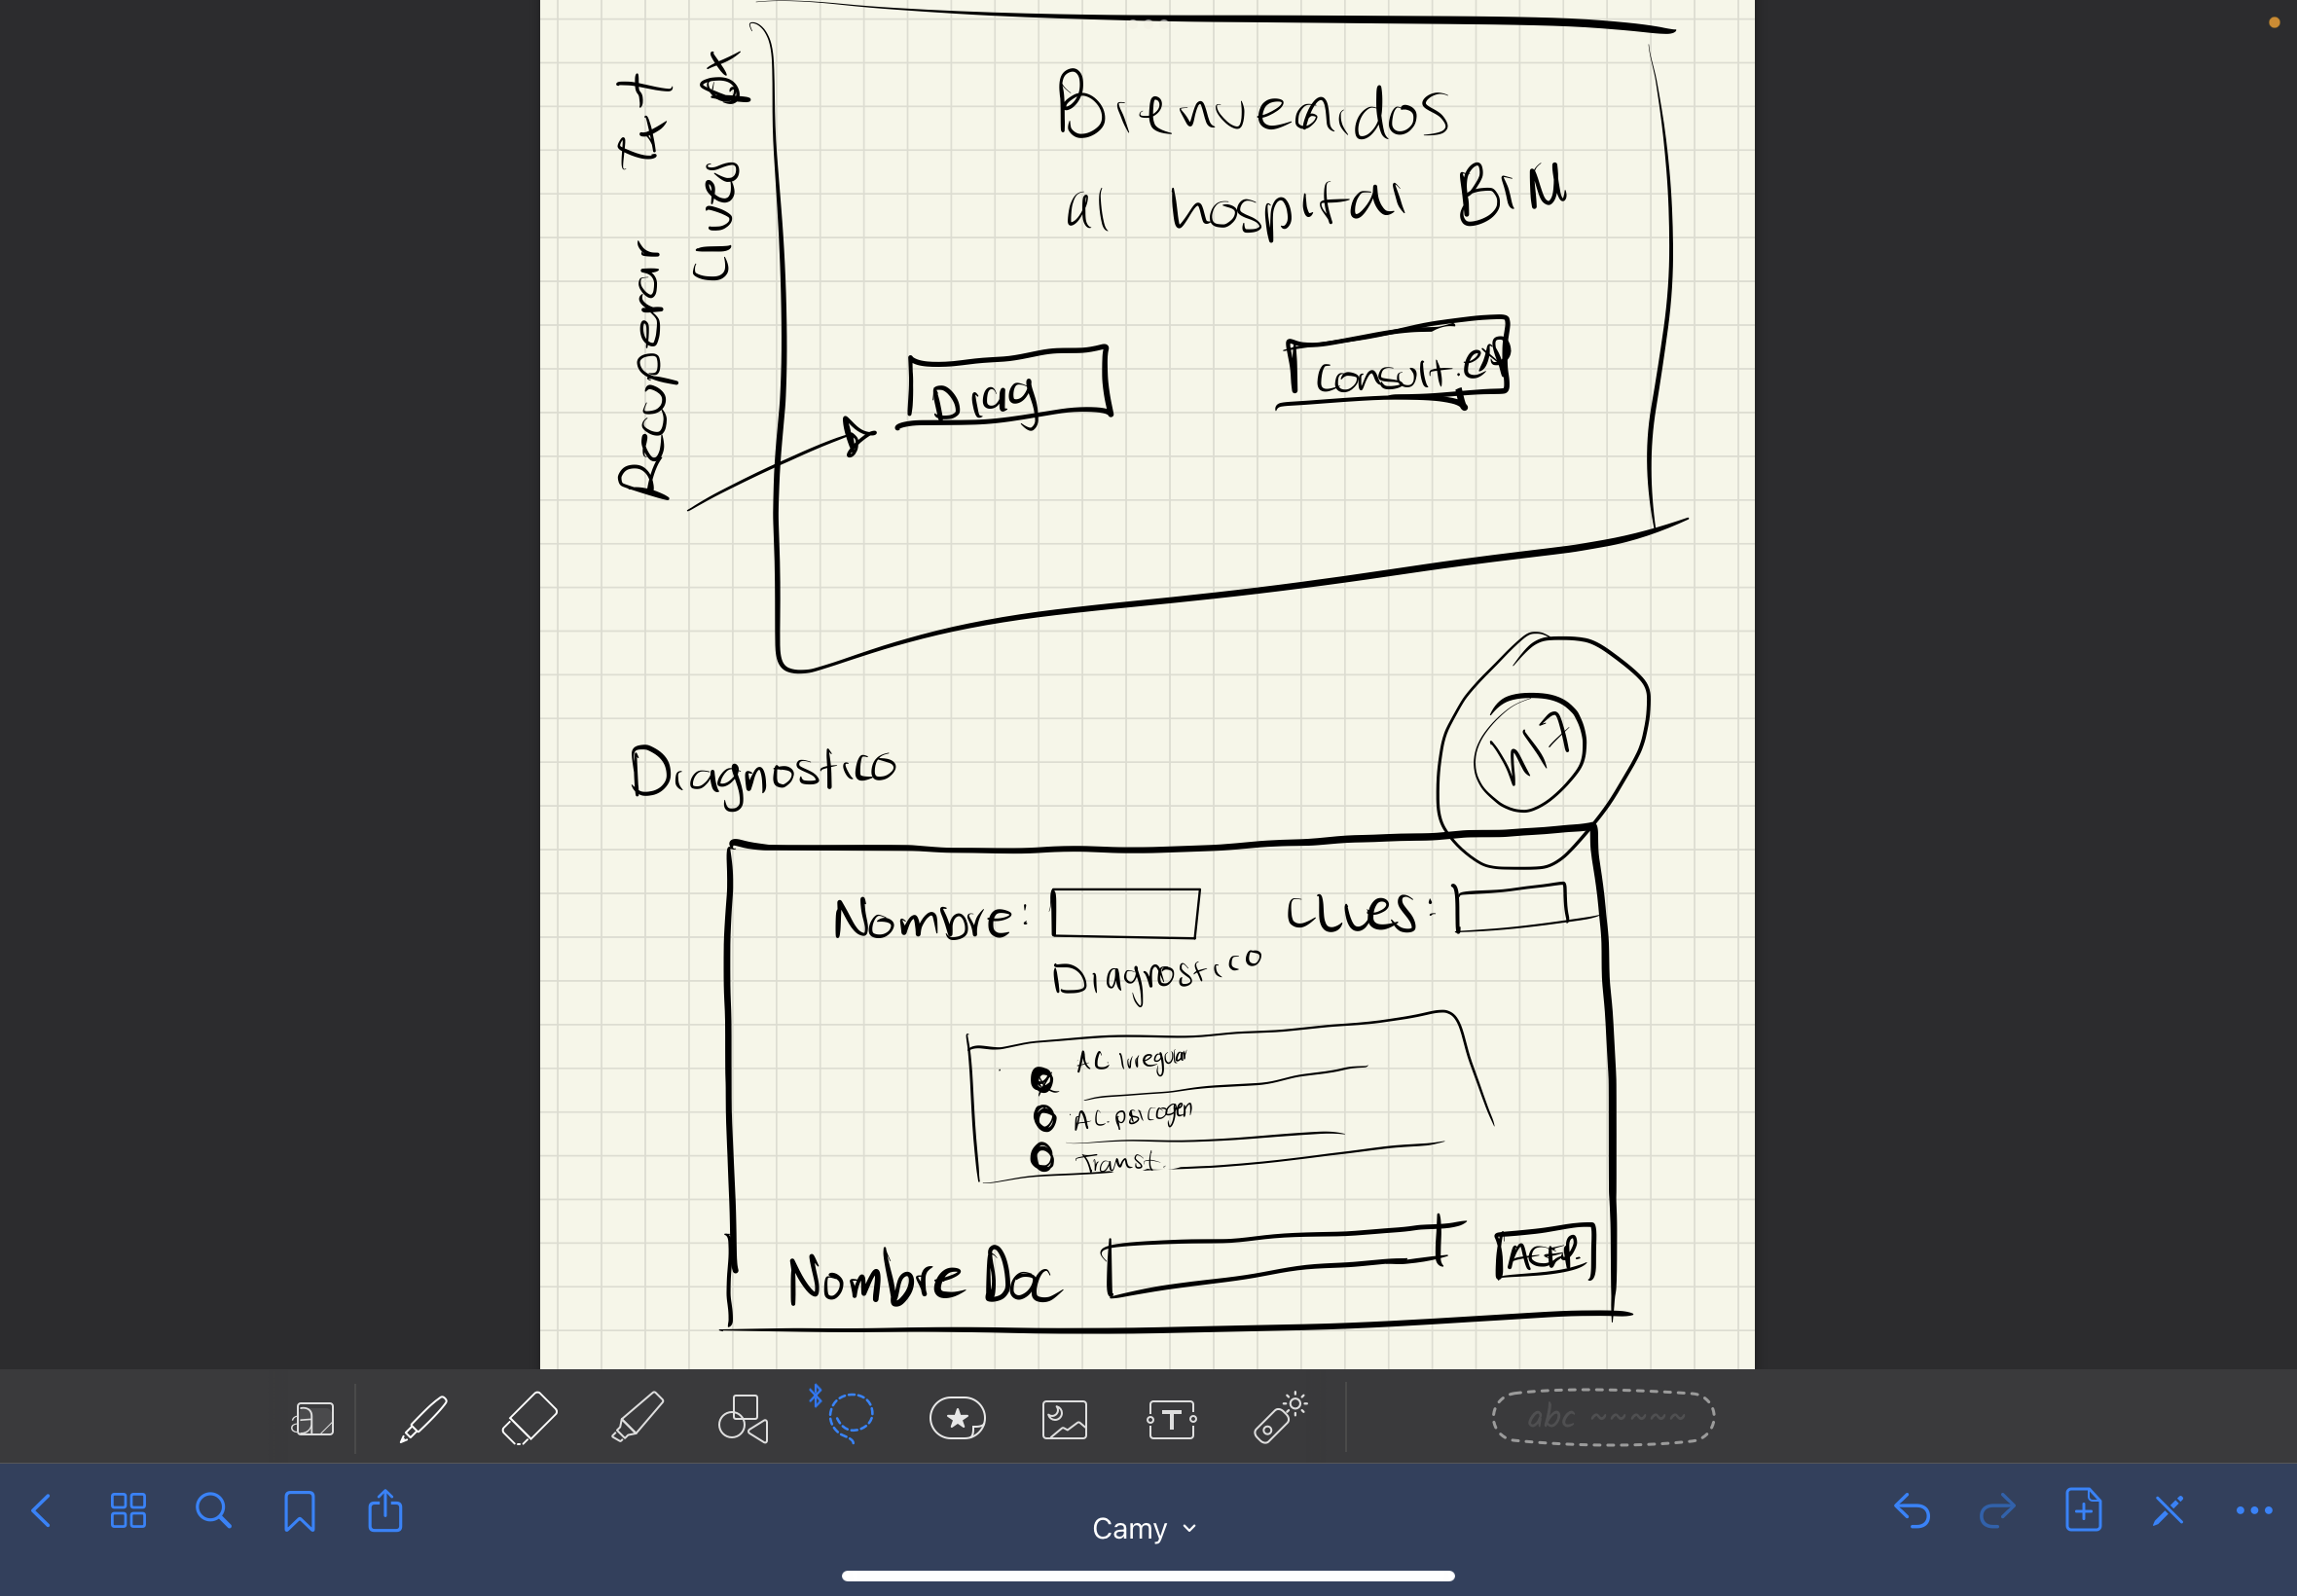 Recuperar txt
clues Dx
Bienvenidos
al hospital BIN
Diag
Consult.
Diagnostico
Nombre:
clues:
Diagnostico
AC. Irregular
AC. psicogen
Transt.
Nombre Doc
abc
Camy